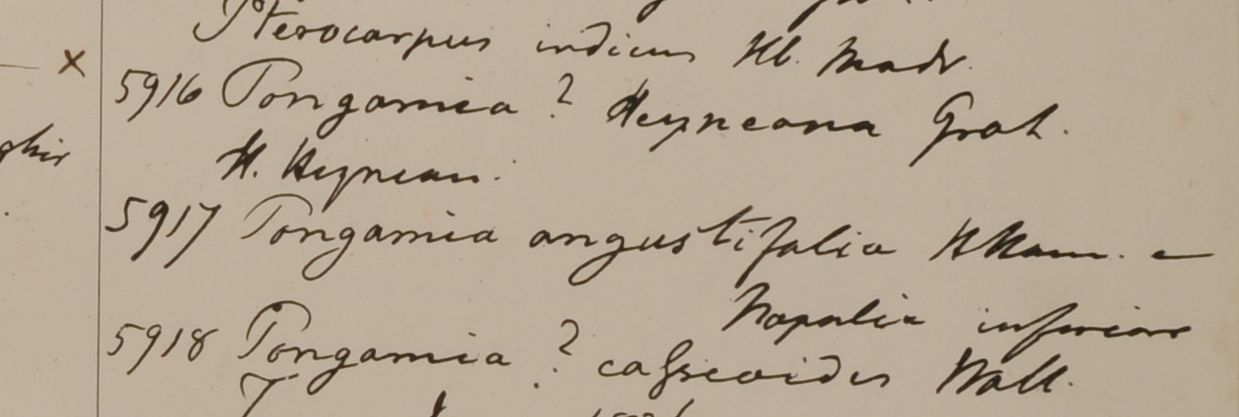 Pterocarpus indicus Hb. Madr.
× 5916 Pongamia ? Heyneana Grah.
H. Heynean.
5917 Pongamia angustifolia HHam. e
Napalia inferiore
5918 Pongamia ? cassioides Wall.